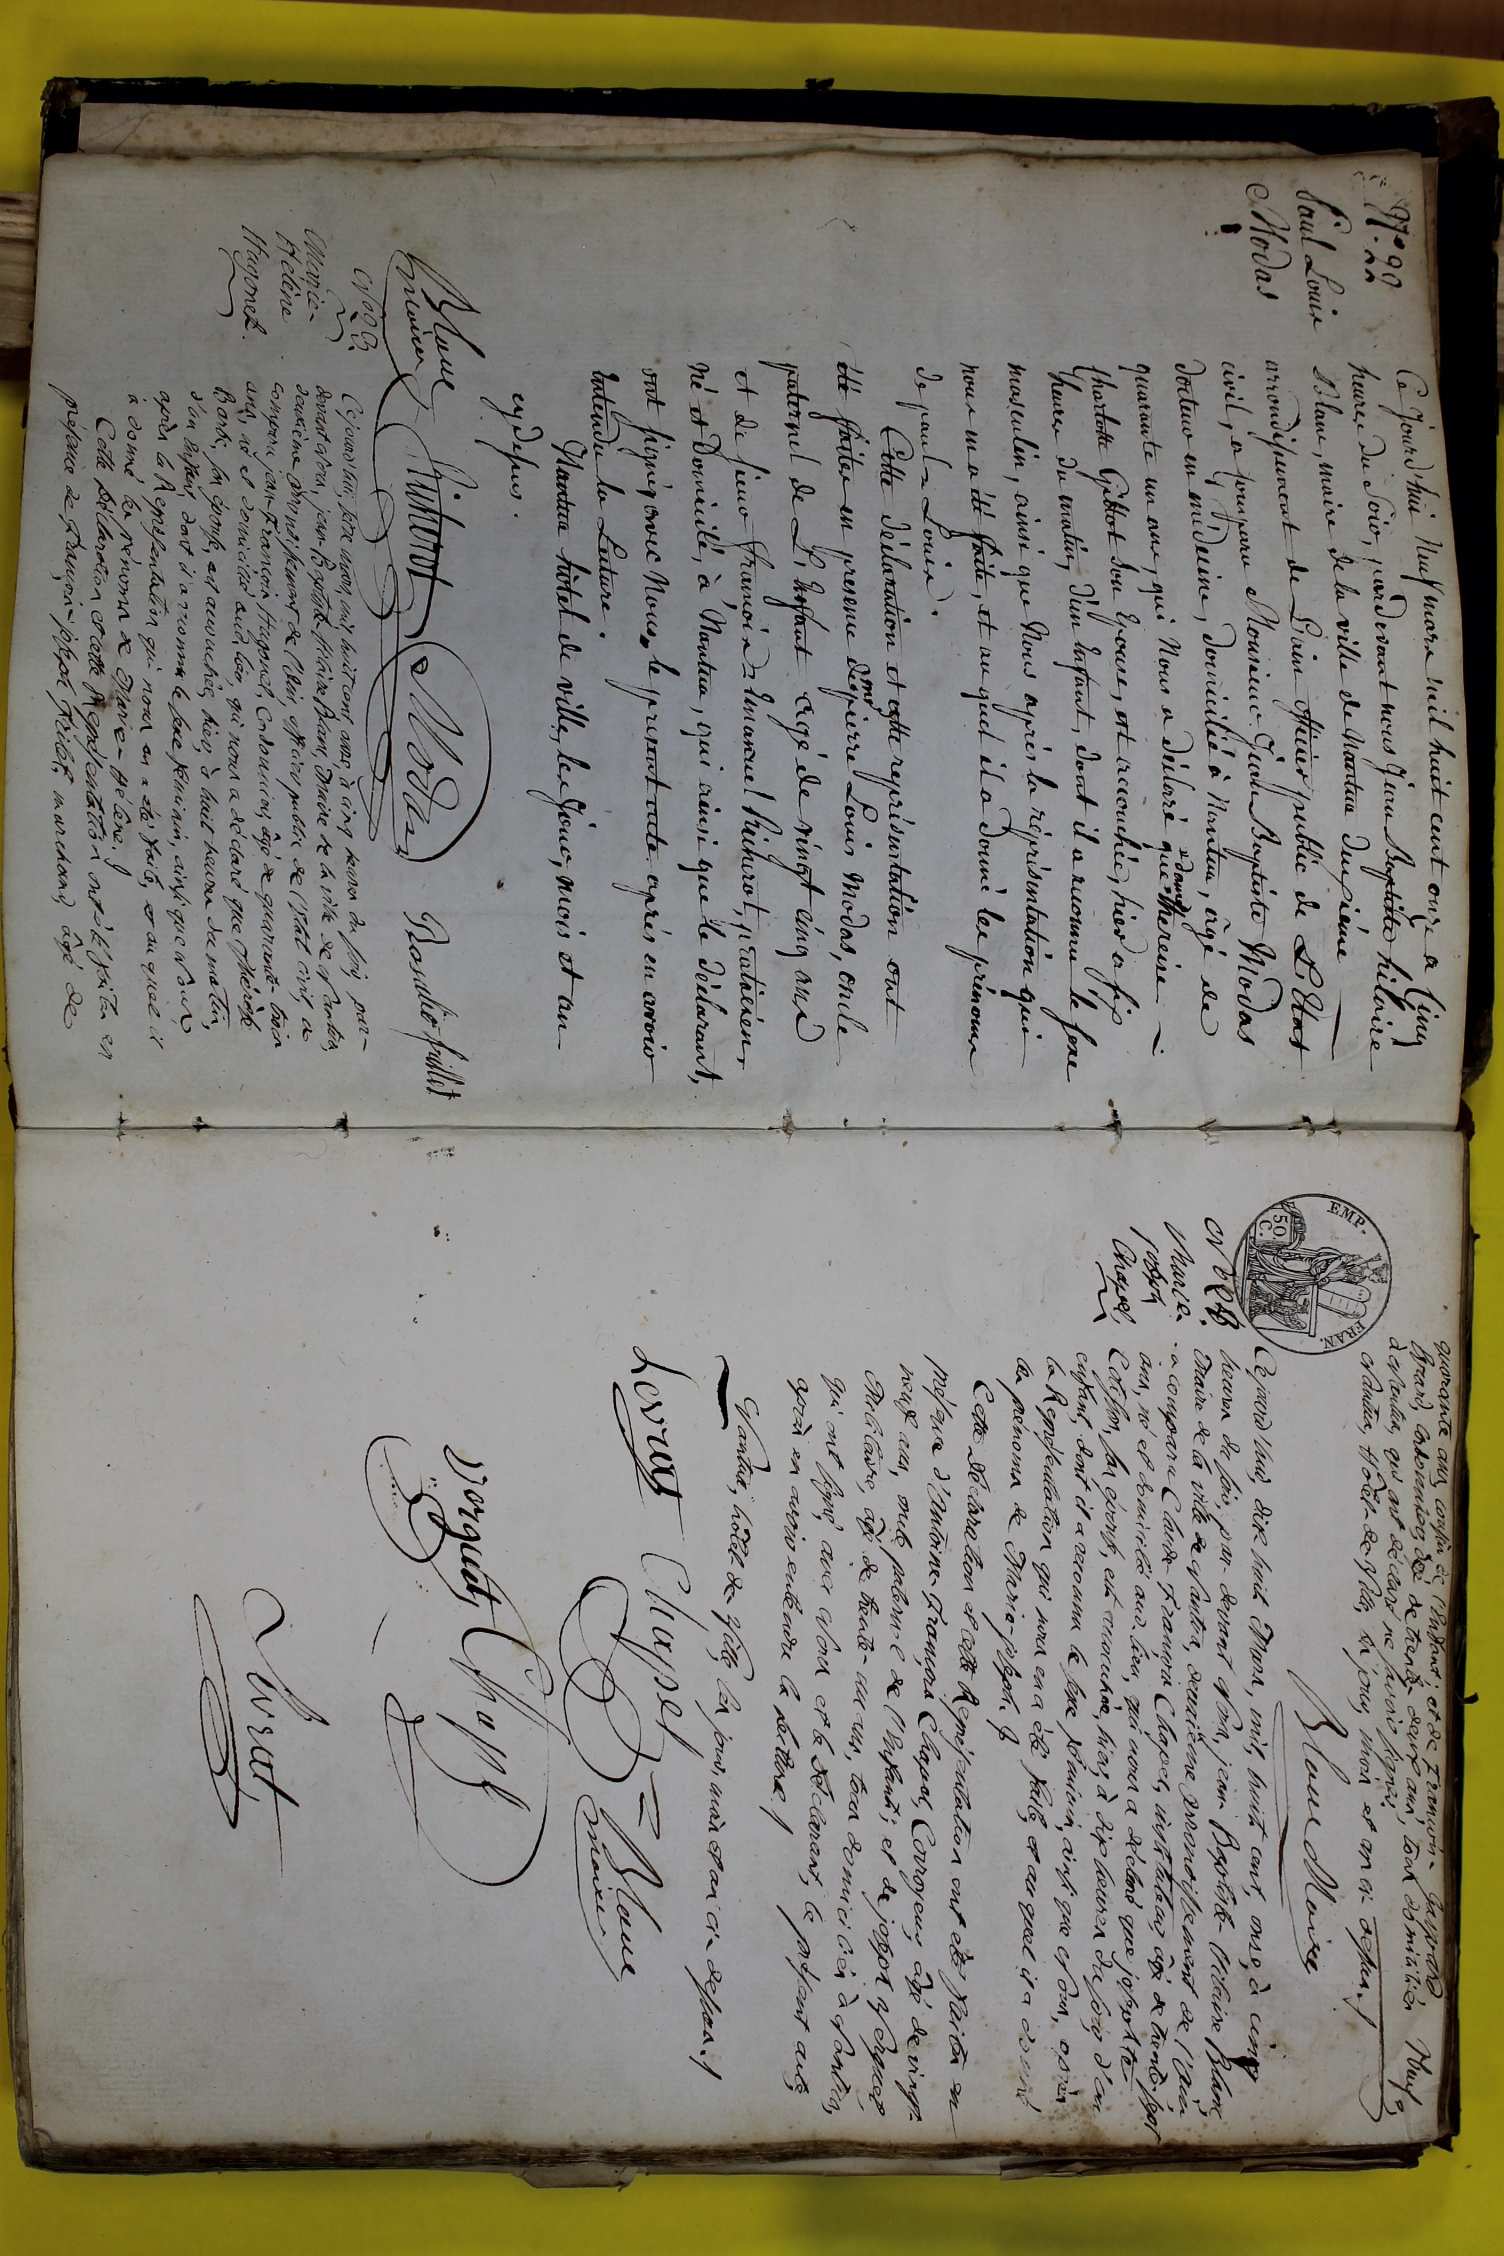 N.° 22
Paul Louis
Modas
Ce Jourd'hui Neuf mars mil huit cent onze a Cinq
heures du Soir, pardevant nous Jean Baptiste hilaire
Blanc, maire de la ville de Nantua Deuxième
arrondissement de L'ain officier public de L'Etat
civil, a Comparu Monsieur Jean Baptiste Modas
docteur en médecine, domicilié à Nantua, âgé de
quarante un ans, qui Nous a déclaré que dame thereise
Charlotte Son Epouse, est accouchée, hier a six
heures du matin, d'un Enfant, dont il a reconnu le sexe
masculin, ainsi que Nous après la représentation qui
nous en a été faite, et au quel il a donné les prénoms
de paul = Louis.
Cette déclaration et cette représentation ont
été faites en presence de pierre Louis Modas, oncle
paternel de L'Enfant agé de vingt cinq ans
et de Sieur françois = Emanuel praticien,
Né et Domicilié, à Nantua, qui ainsi que le déclarant,
ont signé avec Nous, le present acte après en avoir
entendu la Lecture.
Nantua hôtel de ville, les Jour, mois et an
cy dessus.
Blanc
maire
Modas
N.° 23.
Marie-
Hélène
Hugonet.
Cejourd'hui, mars, mil huit cent onze, à cinq heures du soir, par-
devant Nous, jean-Baptiste-Hilaire Blanc, Maire de la ville de Nantua,
deuxième Arrondissement de l'Ain, officier public de l'Etat civil, a
comparu jean-François Hugonet, Cordonnier, âgé de quarante-trois
ans, né et domicilié aud. lieu, qui nous a déclaré que Thérèse
son épouse, est accouchée, hier, à huit heures du matin,
d'un Enfant, dont il a reconnu le sexe féminin, ainsi que Nous,
après la Représentation qui nous en a été faite, et au quel il
a donné les prénoms de Marie-Hélène.
Cette déclaration et cette Représentation ont été faites en
présence de François-joseph marchand, âgé de
quarante ans, cousin de l'Enfant; et de François-Gaspard
cordonnier, âgé de trente-deux ans, tous domiciliés
à Nantua, qui ont déclaré ne savoir signer.
Nantua, Hôtel-de-Ville, les jour, mois et an ci-dessus.
Blanc Maire
EMP.
FRAN.
50
C.
N.° 24.
Marie-
joseph
Chapel,
Cejourd'hui, dix huit Mars, mil huit cent onze, à cinq
heures du soir, par-devant Nous, jean-Baptiste-Hilaire Blanc
Maire de la ville de Nantua, deuxième Arrondissement de l'Ain,
a comparu Claude-François Chapel, instituteur, âgé de trente-sept
ans, né et domicilié aud. lieu, qui nous a déclaré que josephte
son épouse, est accouchée, hier, à dix heures du soir, d'un
enfant, dont il a reconnu le sexe féminin, ainsi que Nous, après
la Représentation qui nous en a été faite, et au quel il a donné
les prénoms de Marie-joseph.
Cette déclaration et cette Représentation ont été faites en
présence d'Antoine-François Chapel, Corroyeur, âgé de vingt-
neuf ans, oncle paternel de l'Enfant; et de joseph
Militaire, âgé de trente-un ans, tous domiciliés à Nantua,
qui ont signé, avec Nous et le déclarant, le présent acte,
après en avoir entendu la lecture.
Nantua, hôtel-de-Ville, les jour, mois et an ci-dessus.
Chapel
Blanc
maire
Chappel